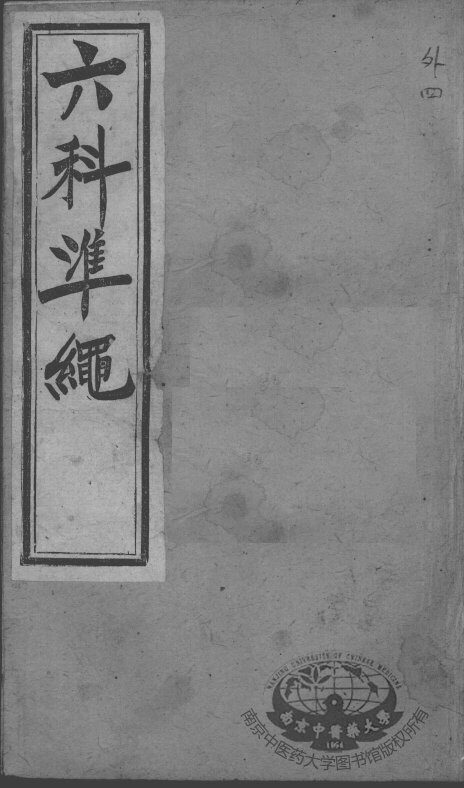 六科準繩
外四
NANJING UNIVERSITY OF CHINESE MEDICINE
南京中醫藥大學
1954
南京中医药大学图书馆版权所有